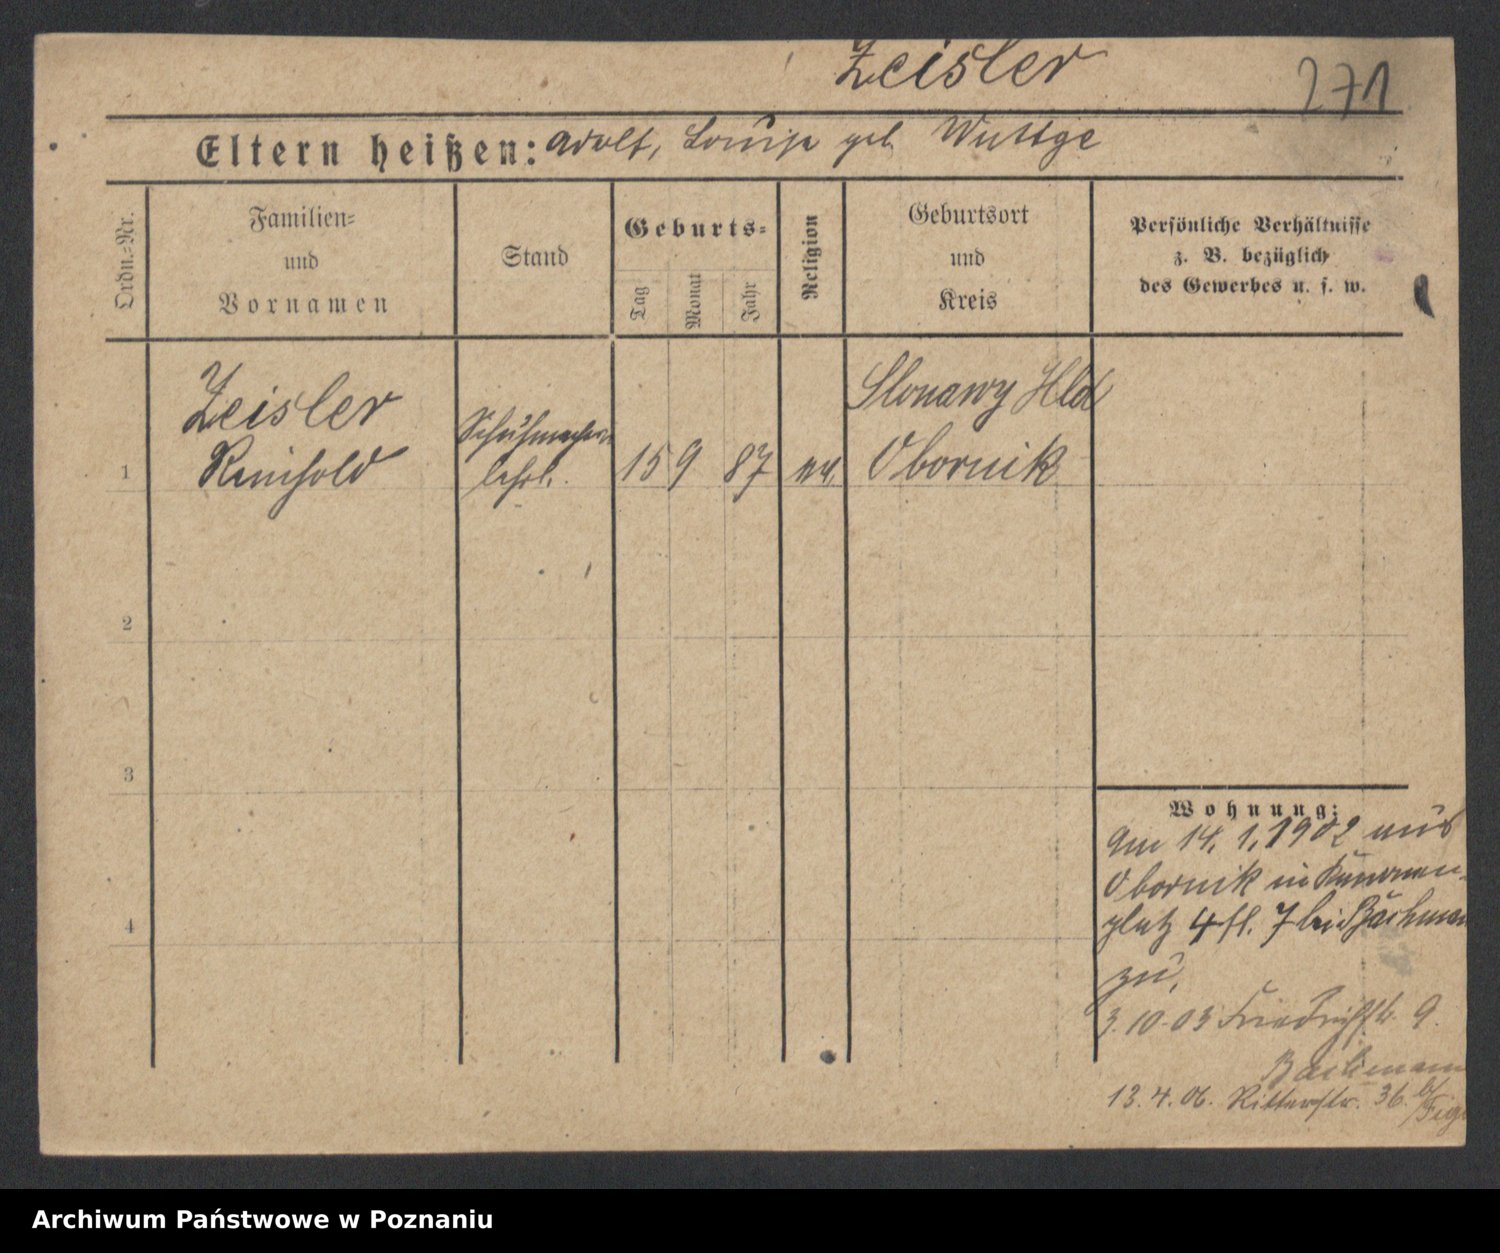 Zeisler
271
Eltern heißen: Adolf, Louise geb. Wuttge
Ordn.-Nr.
Familien-
und
Vornamen
Stand
Geburts-
Tag
Monat
Jahr
Religion
Geburtsort
und
Kreis
Persönliche Verhältnisse
z. B. bezüglich
des Gewerbes u. s. w.
1
Zeisler
Reinhold
Schuhmacher
lehrl.
15
9
87
ev.
Slonawy Hld
Obornik
2
3
4
Wohnung:
Am 14. 1. 1902 aus
Obornik in
platz 4 II. 7 bei
zu.
3.10.03 Friedrichstr. 9.
Bachmann
13.4.06. Ritterstr. 36 b/
Archiwum Państwowe w Poznaniu